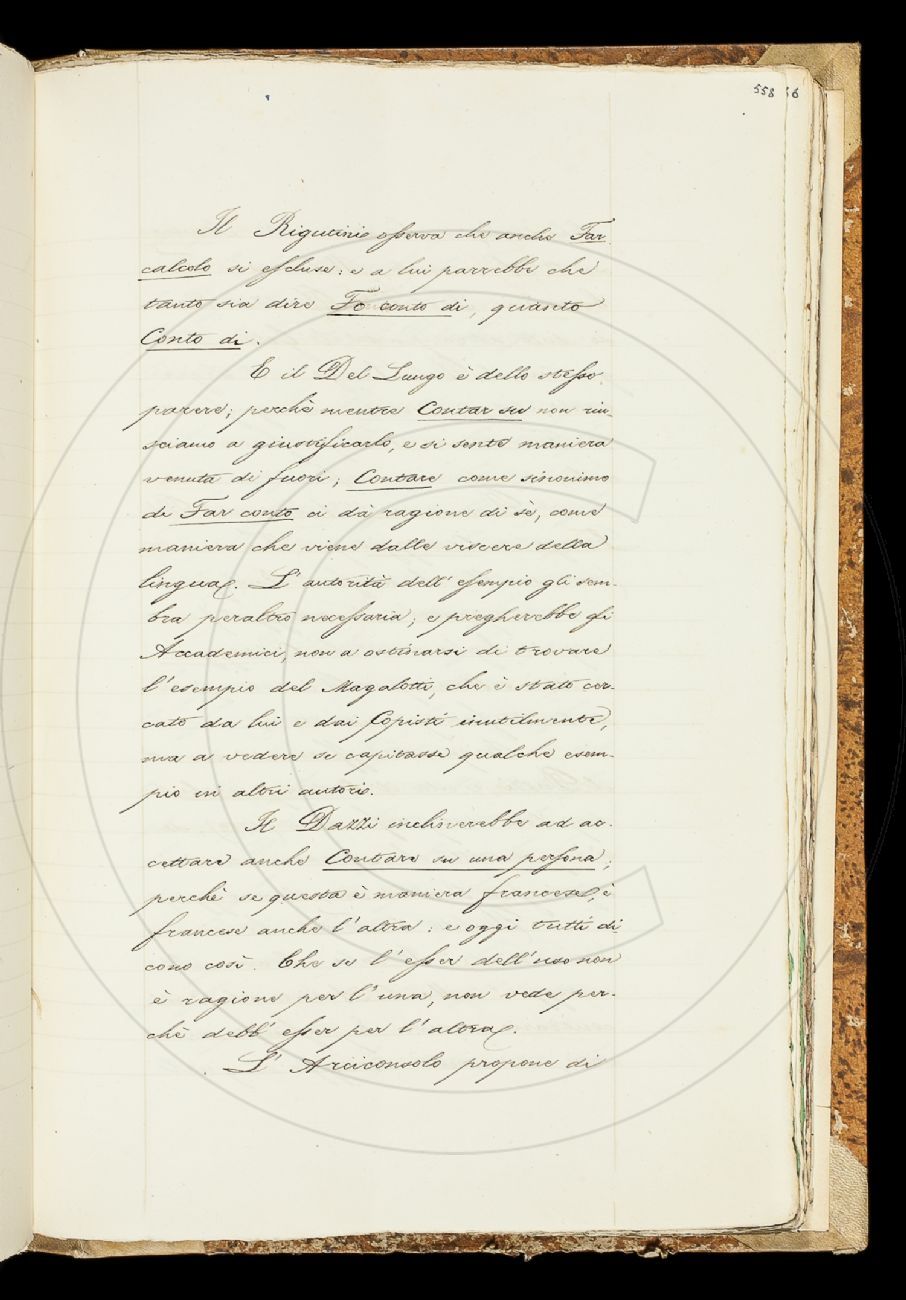 558 56
Il Rigutini osserva che anche Far
calcolo si escluse: e a lui parrebbe che
tanto sia dire Fo conto di, quanto
Conto di.
E il Del Lungo è dello stesso
parere; perchè mentre Contar su non riu-
sciamo a giustificarlo, e si sente maniera
venuta di fuori; Contare come sinonimo
di Far conto ci dà ragione di sè, come
maniera che viene dalle viscere della
lingua. L'autorità dell'esempio gli sem-
bra peraltro necessaria; e pregherebbe gli
Accademici, non a ostinarsi di trovare
l'esempio del Magalotti, che è stato cer-
cato da lui e dai Copisti inutilmente,
ma a vedere se capitasse qualche esem-
pio in altri autori.
Il Dazzi inclinerebbe ad ac-
cettare anche Contare su una persona;
perchè se questa è maniera francese, è
francese anche l'altra: e oggi tutti di-
cono così. Che se l'esser dell'uso non
è ragione per l'una, non vede per-
chè debb'esser per l'altra.
L'Arciconsolo propone di